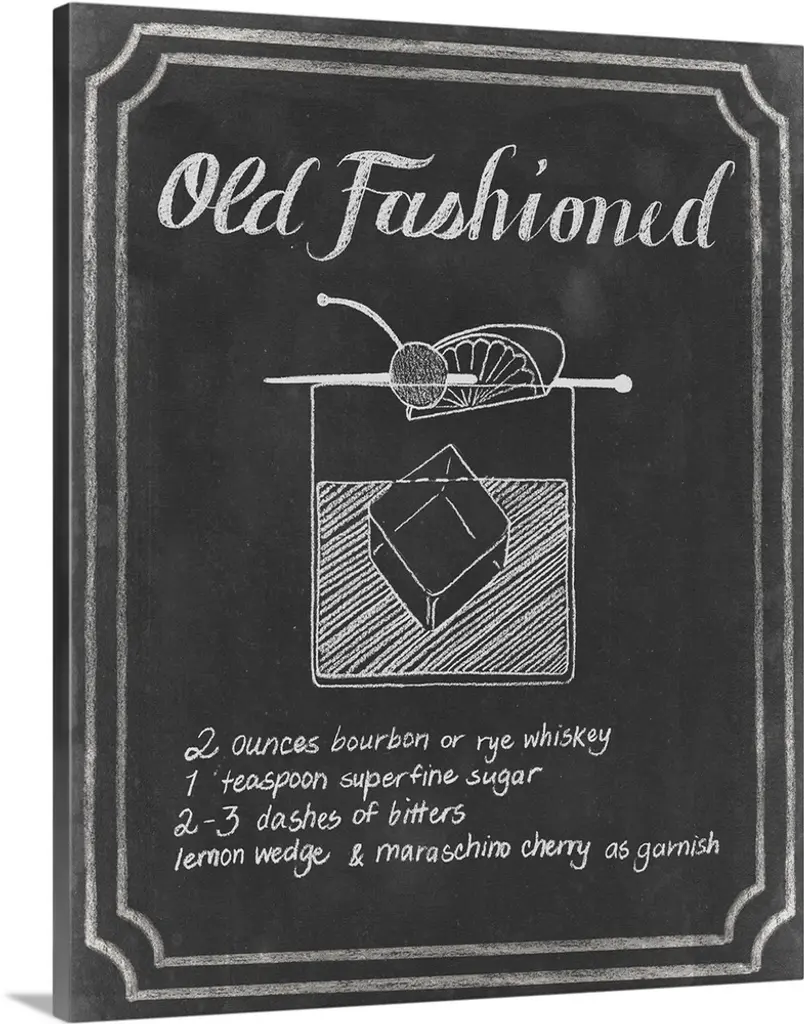 Old Fashioned
2 ounces bourbon or rye whiskey
1 teaspoon superfine sugar
2-3 dashes of bitters
lemon wedge & maraschino cherry as garnish